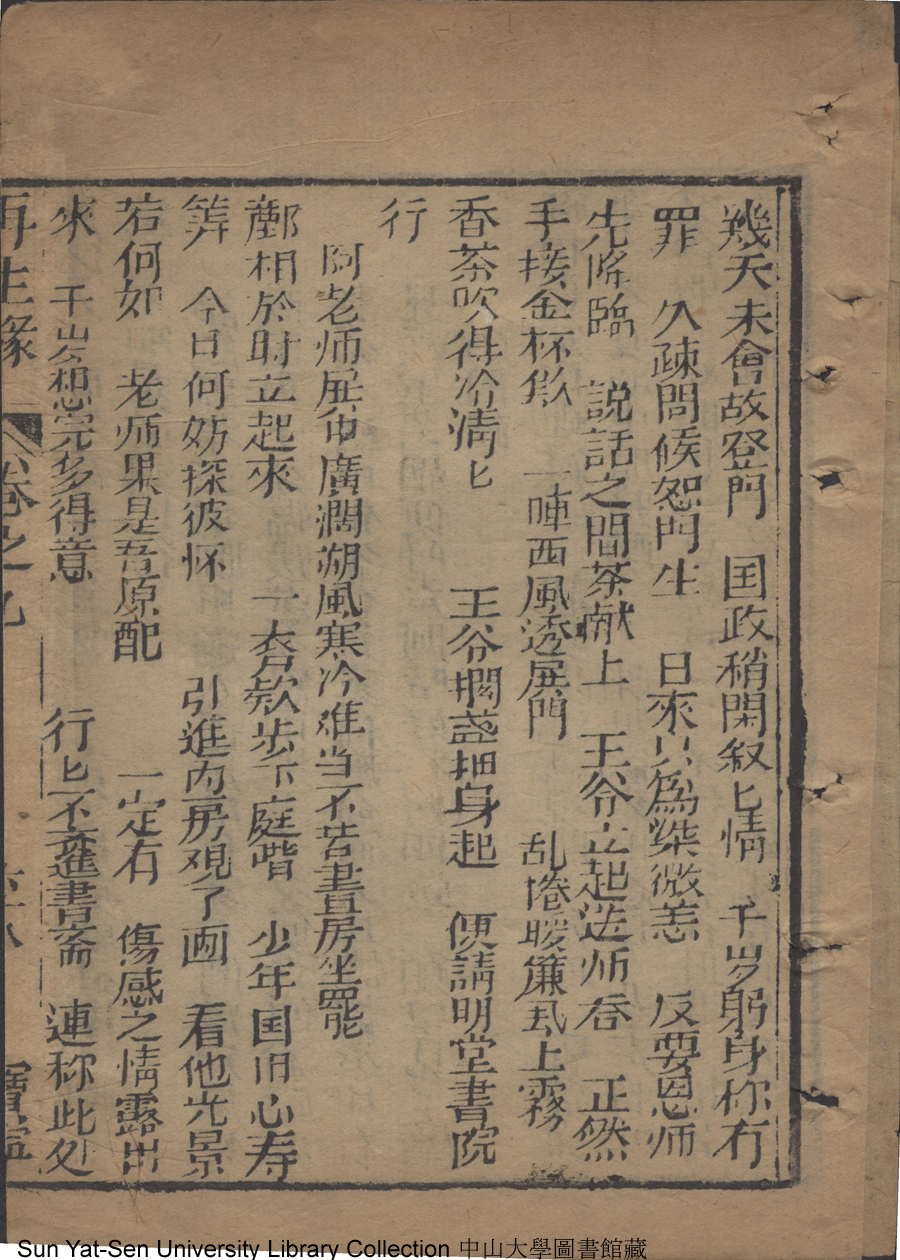 幾天未會故登門　国政稍閑叙匕情　千岁躬身称有
罪　久疎問候恕門生　日來只為染微恙　反要恩师
先降臨　説話之間茶献上　王爷立起送师吞　正然
手接金杯飲　一陣西風透屏門　乱捲暖簾乱上霧
香茶吹得冷清匕　王爷擱盞抽身起　便請明堂書院
行
阿老师展伱廣濶湖風寒冷难当不若書房坐罷
鄺相於时立起來　一衣欵步下庭階　少年国旧心寿
筭　今日何妨探彼怀　引進内房观了画　看他光景
若何如　老师果是吾原配　一定有　傷感之情露出
來　千岁想完多得意　行匕不竟進書斋　連称此处
再生缘　卷之九